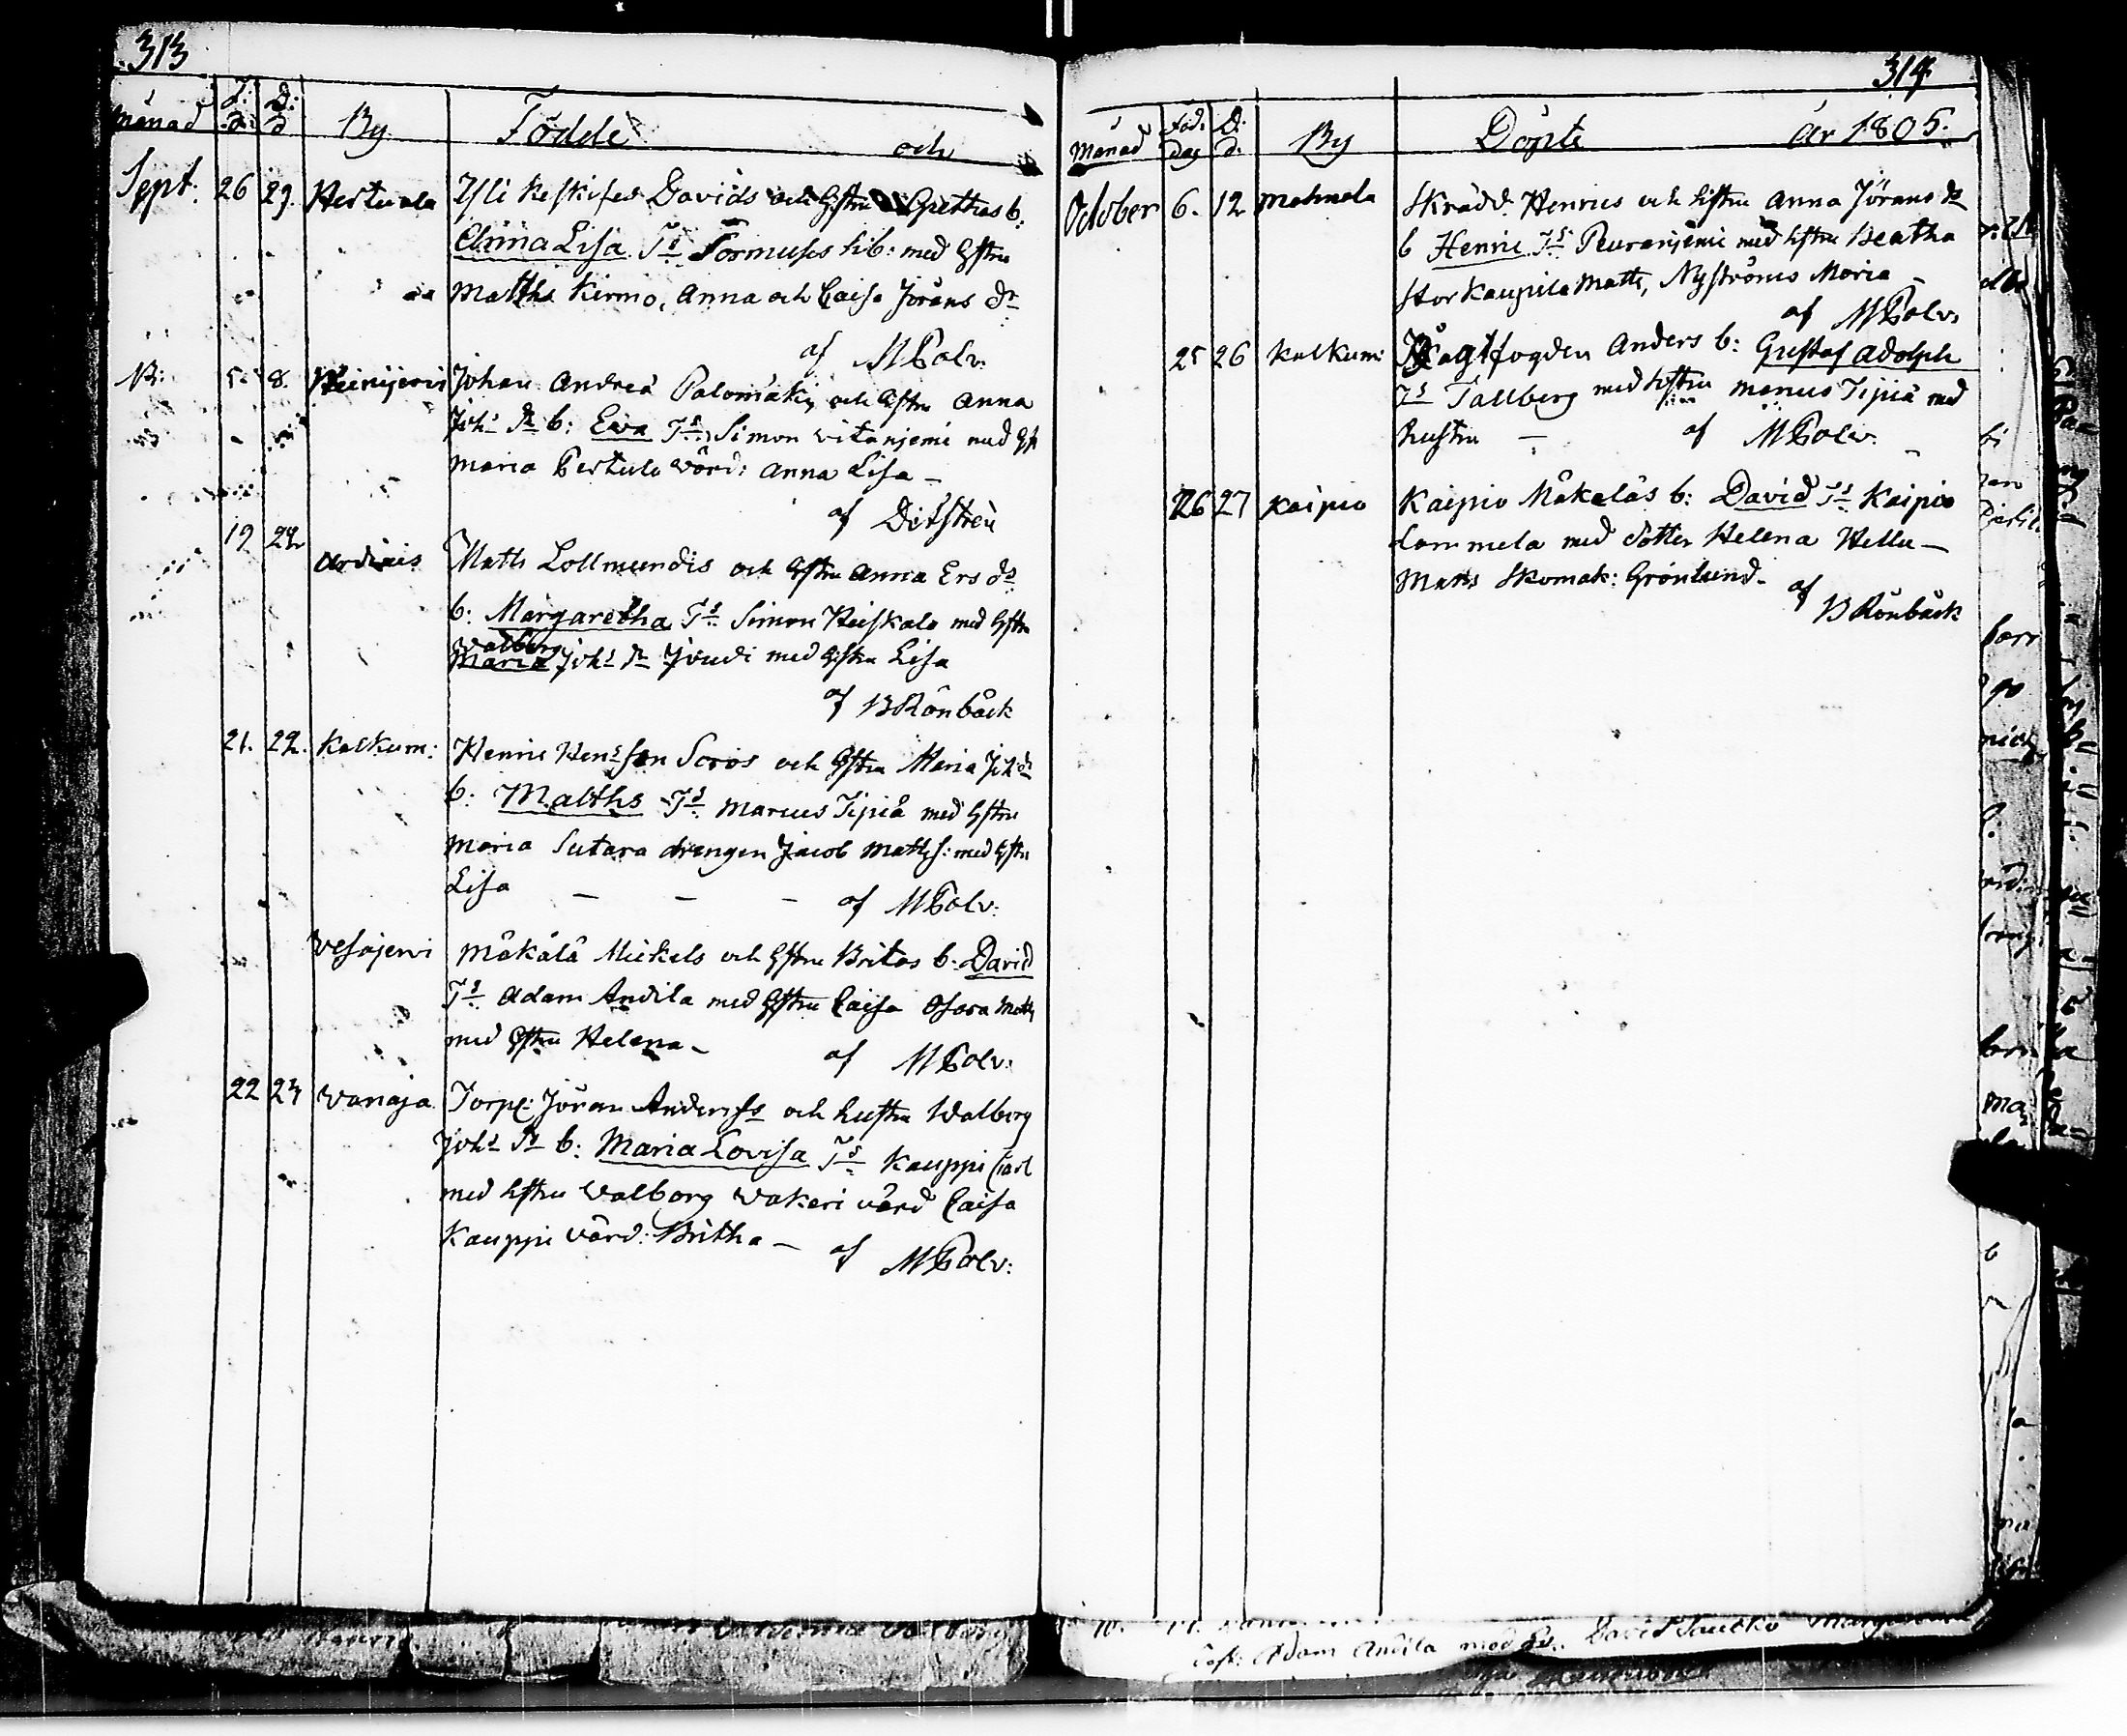 313
månad F: d. D: d By Födde och
Sept. 26 29. Hertuala Yli Keskises Davids och Hstru Grethas b:
Anna Lisa Ts Tormuses hb: med Hstru
Matths Kirmo, Anna och Caisa Jörans dr
af M Polv:
B: 5. 8. Heinijervi Johan Andreä Palomäki, och Hstru Anna
Johs dr b: Ewa Ts Simon witanjemi med Hst
Maria Pertula Wärd: Anna Lisa –
af Ditstrén
19 22 Ardiais Matts Lollmundis och Hstru Anna Ers dr
b: Margaretha Ts Simon Heiskala med Hstru
Walborg
Maria Johs dr Jvudi med Hstru Lisa
af B Rönbäck
21. 22. Kalkum: Henric Hens son Soros och Hstru Maria Joh dr
b: Matths Ts Marcus Tipiä med Hstru
Maria Sutara drengen Jacob Matths: med Hstru
Lisa – – – af M Polv:
Vesajervi Mäkälä Mickels och Hstru Britas b: David
Ts Adam Andila med Hstru Caisa Osara Matts
med Hstru Helena – af M Polv:
22 23 Wanaja Torp: Jöran Anderss och hustru Walborg
Johs dr b: Maria Lovisa Ts Kauppi Carl
med hstru Walborg Wakeri värd Caisa
Kauppi Värd: Britha – af M Polv:
314
månad Föd. dag D. d. By Döpte år 1805.
October 6. 12 Mahnala Skrädd. Henrics och hstru Anna Jörans dr
b Henric Ts Peuranjemi med hstru Beatha
Stor Kaupila Matts, Nyströms Maria –
af M Polv.
25 26 Kalkum: Jagtfogden Anders b: Gustaf Adolph
Ts Tallberg med hstru Marcus Tipiä med
hustru – af M Polv.
26 27 Kaipio Kaipio Mäkeläs b: David Ts Kaipio
Lammela med dotter Helena Hellu –
Mats Skomak: Grönlund – af
B Rönbäck
Adam Andila med David